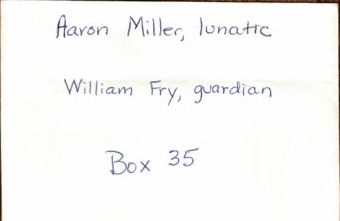 Aaron Miller, lunatic
William Fry, guardian
Box 35